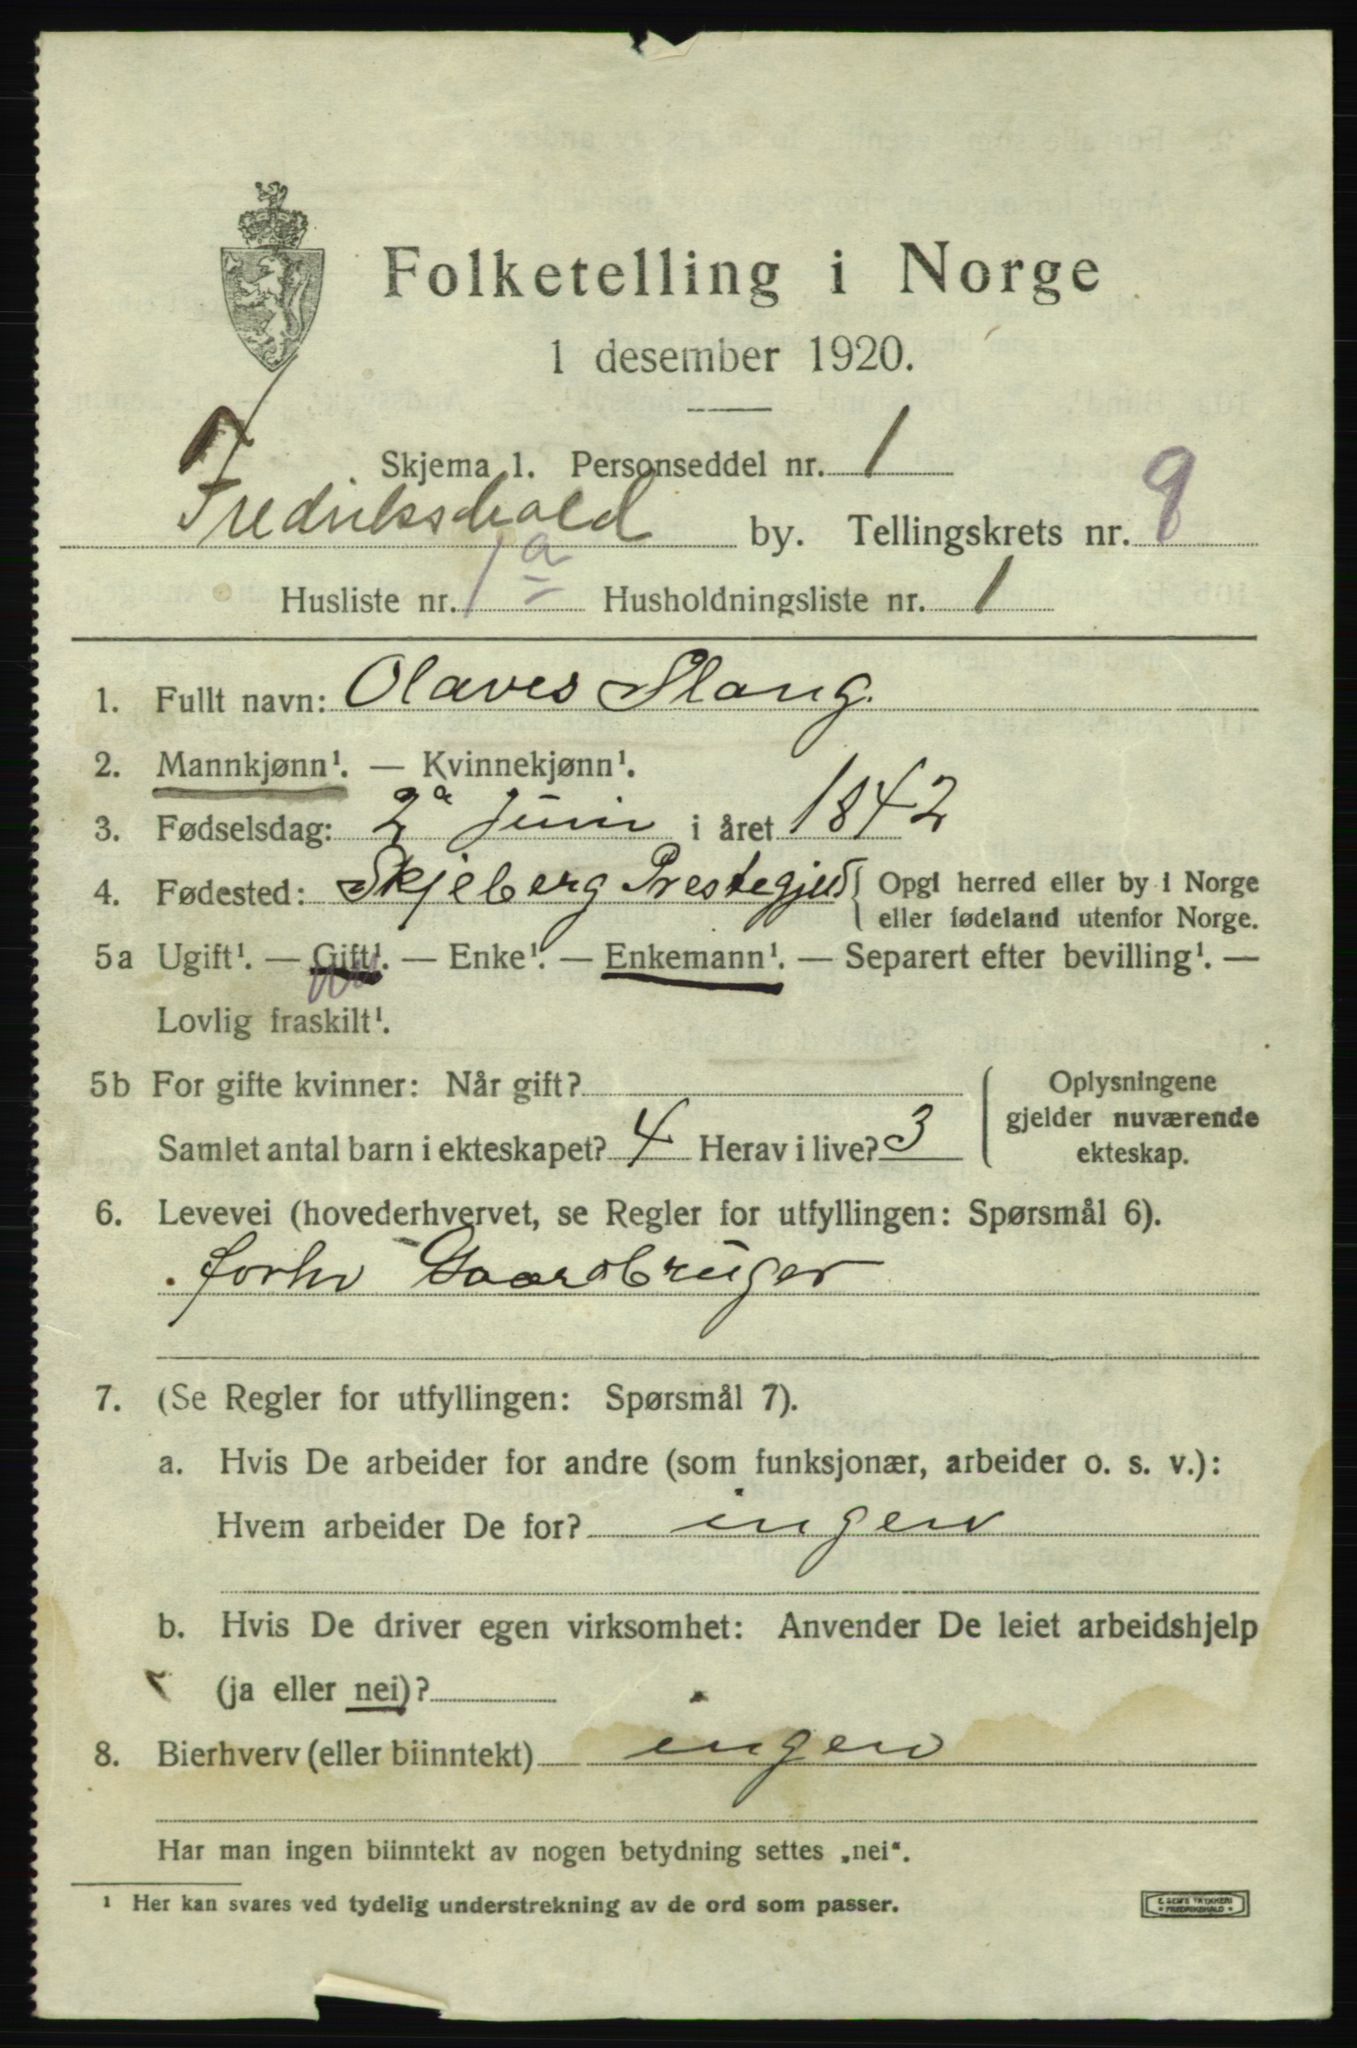 Folketelling i Norge
1 desember 1920.
Skjema 1. Personseddel nr. 1
Fredrikshald by. Tellingskrets nr. 9
Husliste nr. 1a Husholdningsliste nr. 1
1. Fullt navn: Olaves Stang.
2. Mannkjønn¹. — Kvinnekjønn¹.
3. Fødselsdag: 2a Juni i året 1842
4. Fødested: Skjeberg Prestegjeld { Opgi herred eller by i Norge
eller fødeland utenfor Norge.
5a Ugift¹. — Gift¹. — Enke¹. — Enkemann¹. — Separert efter bevilling¹. —
Lovlig fraskilt¹.
5b For gifte kvinner: Når gift?
Samlet antal barn i ekteskapet? 4 Herav i live? 3
{ Oplysningene
gjelder nuværende
ekteskap.
6. Levevei (hovederhvervet, se Regler for utfyllingen: Spørsmål 6).
forhv Gaardbruger
7. (Se Regler for utfyllingen: Spørsmål 7).
a. Hvis De arbeider for andre (som funksjonær, arbeider o. s. v.):
Hvem arbeider De for? ingen
b. Hvis De driver egen virksomhet: Anvender De leiet arbeidshjelp
(ja eller nei)?
8. Bierhverv (eller biinntekt) ingen
Har man ingen biinntekt av nogen betydning settes „nei“.
¹ Her kan svares ved tydelig understrekning av de ord som passer.
E. SEM'S TRYKKERI
FREDRIKSHALD